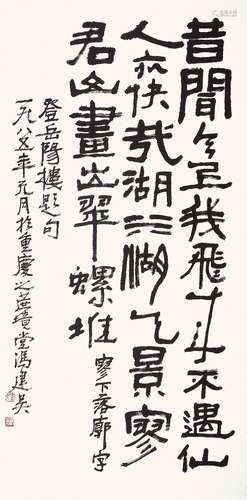 昔聞今至我飛來不遇仙
人亦快哉湖水湖天景寥
君山畫出翠螺堆 寥下落廓字
登岳陽樓題句
一九八五年元月於重慶之境堂馮建吳